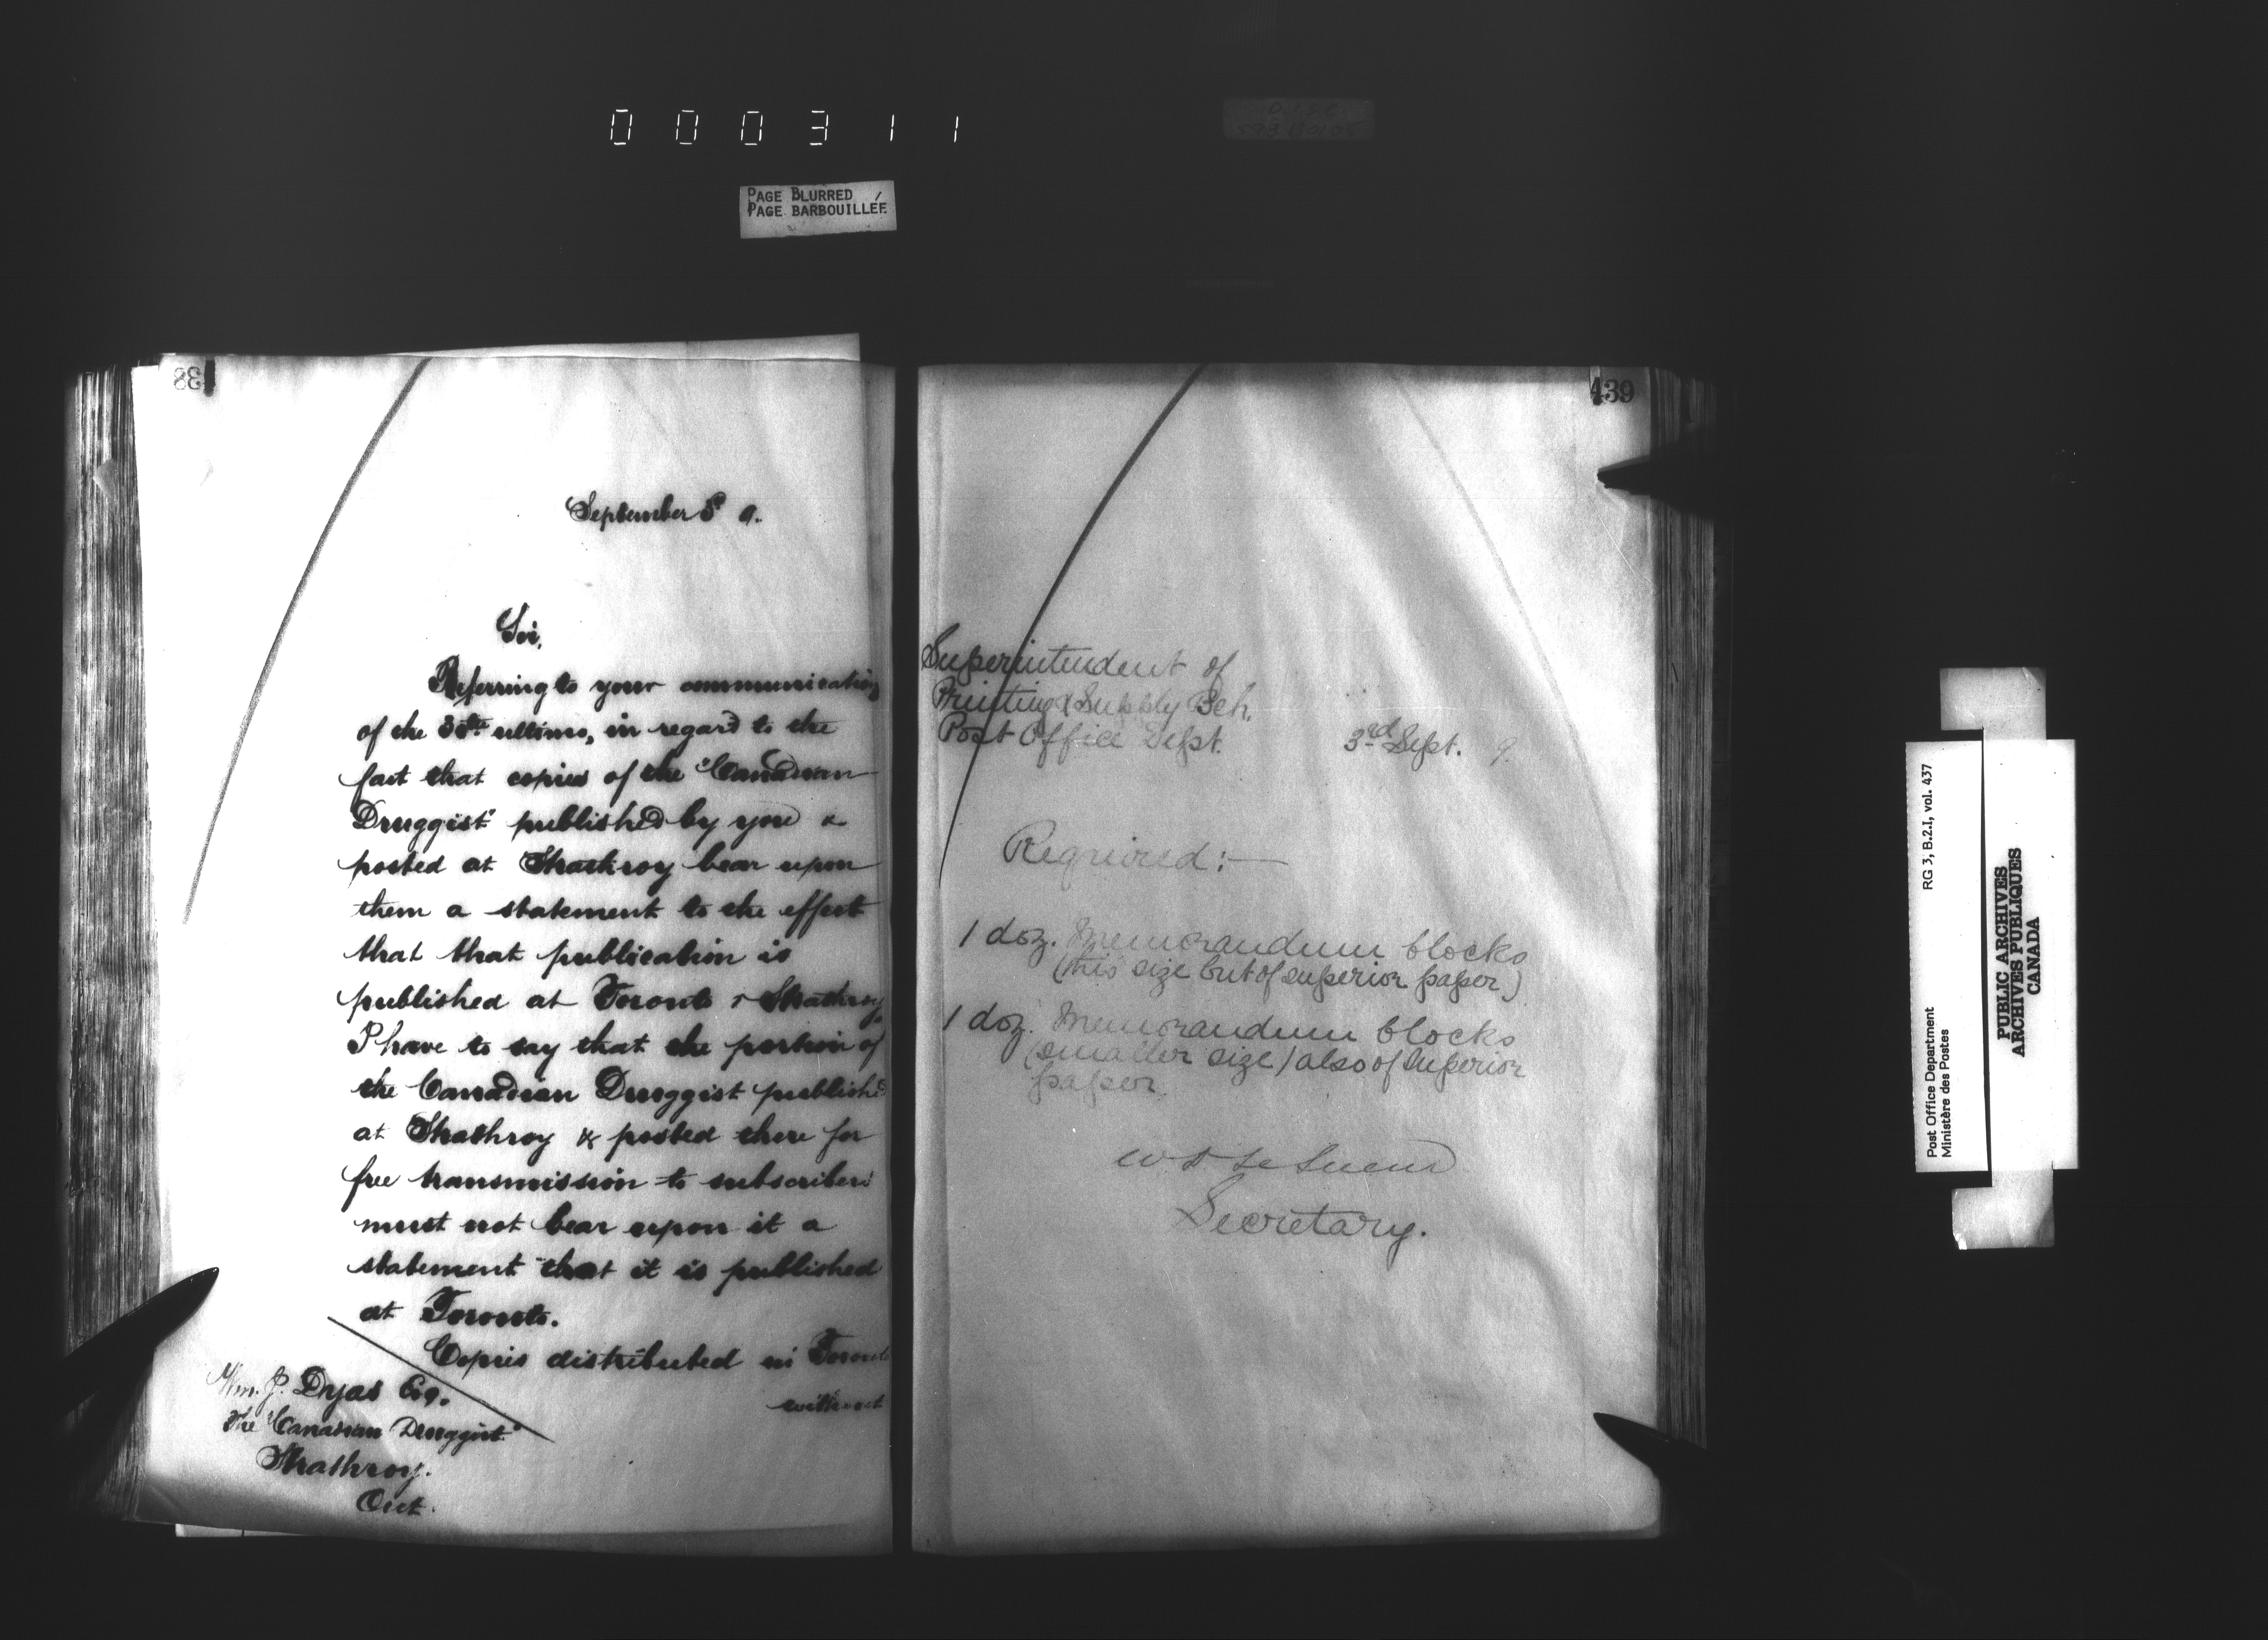 000311
PAGE BLURRED
PAGE BARBOUILLÉE
38
September 9.
Sir,
Referring to your communication
of the 30th ultimo, in regard to the
fact that copies of the "Canadian
Druggist" published by you &
posted at Strathroy bear upon
them a statement to the effect
that that publication is
published at Toronto & Strathroy,
I have to say that the portion of
the Canadian Druggist published
at Strathroy & posted there for
free transmission to subscribers
must not bear upon it a
statement that it is published
at Toronto.
Copies distributed in Toronto
without
Wm. J. Dyas Esq.
The "Canadian Druggist"
Strathroy.
Ont.
439
Superintendent of
Printing & Supply Bch.
Post Office Dept. 3rd Sept. 9.
Required:—
1 doz. Memorandum blocks
(this size but of superior paper)
1 doz. Memorandum blocks
(smaller size) also of superior
paper
W D Le Sueur
Secretary.
RG 3, B.2.I, vol. 437
Post Office Department
Ministère des Postes
PUBLIC ARCHIVES
ARCHIVES PUBLIQUES
CANADA